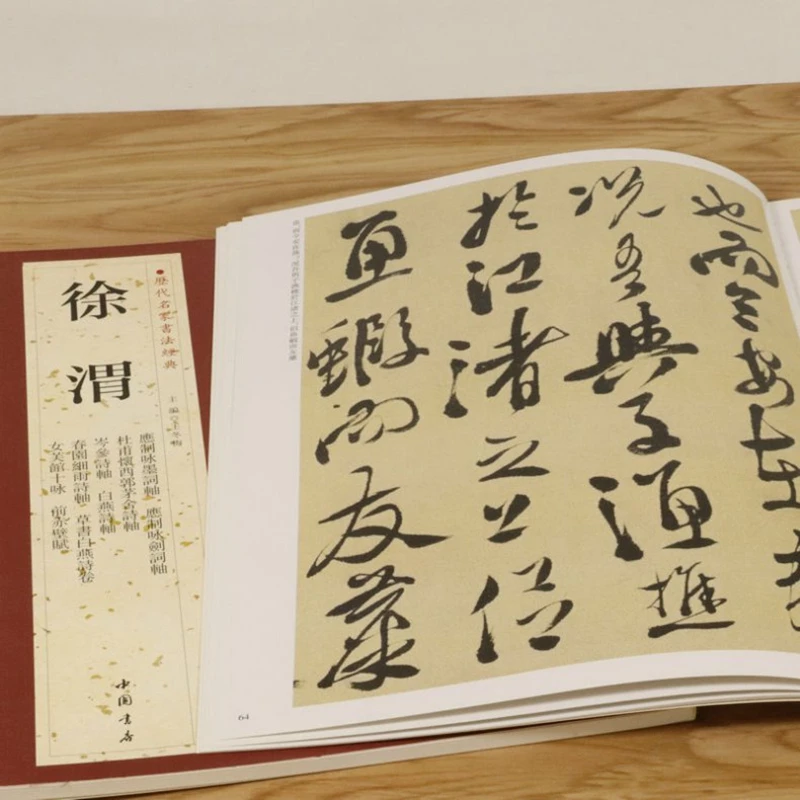 歷代名家書法經典
徐渭
主編 王冬梅
應制咏墨詞軸 應制咏劍詞軸
杜甫懷西郭茅舍詩軸
岑參詩軸 白燕詩軸
春園細雨詩軸 草書白燕詩卷
女芙館十咏 前赤壁賦
中国書店
也而今安在
況吾與子漁樵
於江渚之上侶
魚蝦而友麋
64